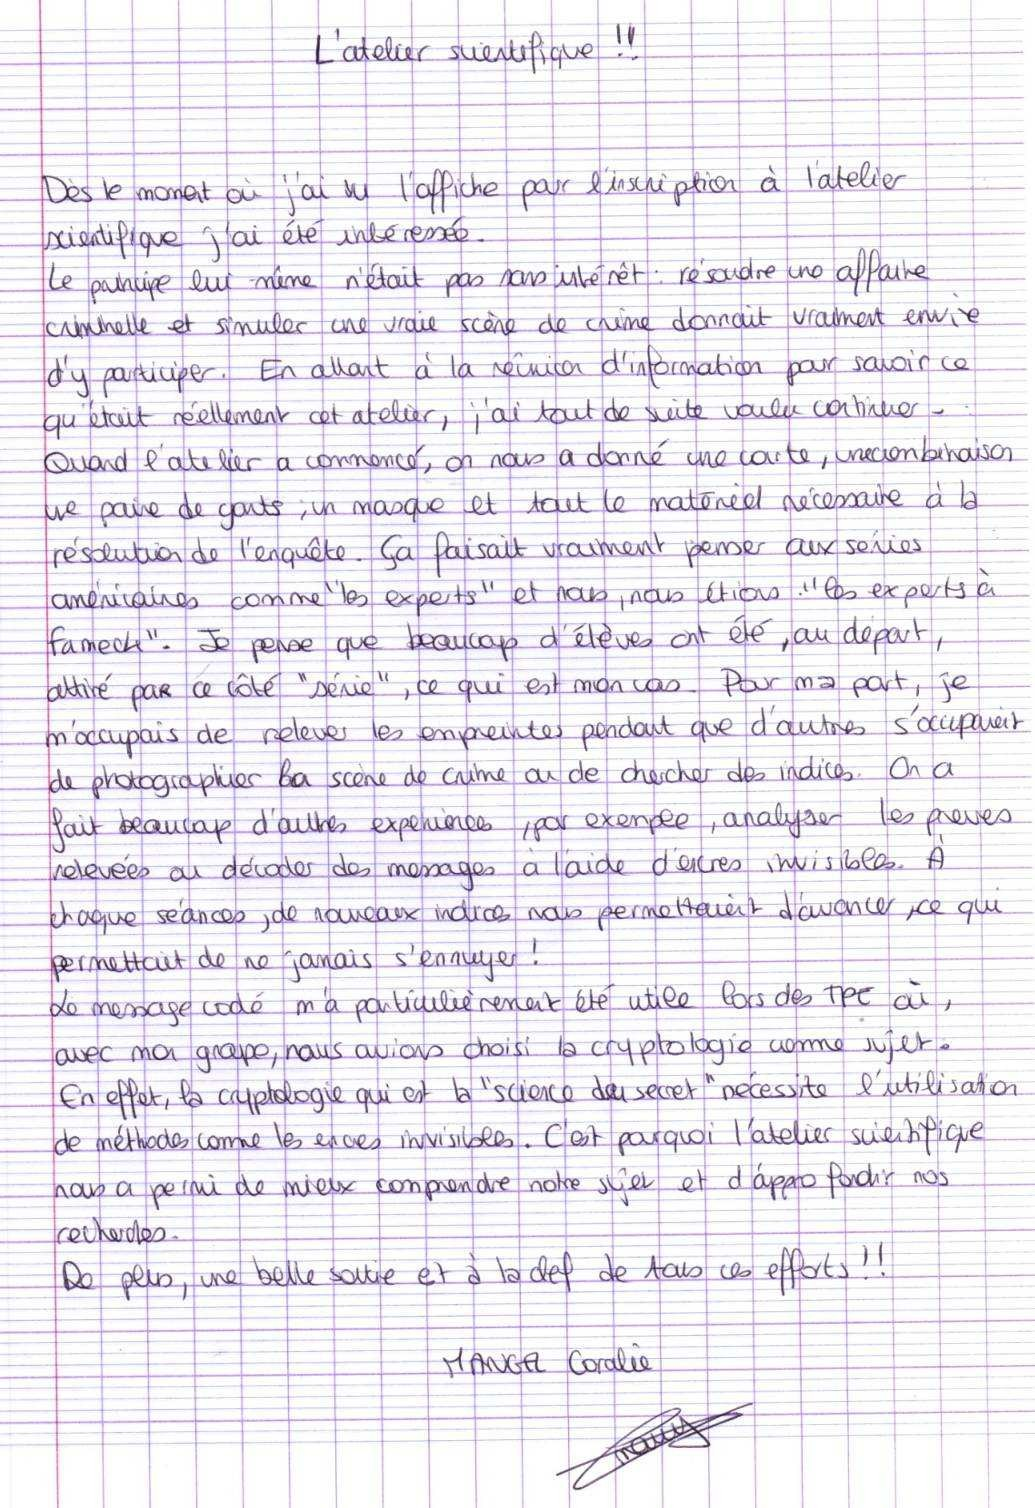 L'atelier scientifique !!
Dès le moment où j'ai vu l'affiche pour l'inscription à l'atelier
scientifique j'ai été intéressée.
Le principe lui même n'était pas sans intérêt : résoudre une affaire
criminelle et simuler une vraie scène de crime donnait vraiment envie
d'y participer. En allant à la réunion d'information pour savoir ce
qu'était réellement cet atelier, j'ai tout de suite voulu continuer.
Quand l'atelier a commencé, on nous a donné une carte, une combinaison
une paire de gants, un masque et tout le matériel nécessaire à la
résolution de l'enquête. Ça faisait vraiment penser aux séries
américaines comme "les experts" et nous, nous étions "les experts à
Fameck". Je pense que beaucoup d'élèves ont été, au départ,
attiré par ce côté "série", ce qui est mon cas. Pour ma part, je
m'occupais de relever les empreintes pendant que d'autres s'occupaient
de photographier la scène de crime ou de chercher des indices. On a
fait beaucoup d'autres expériences, par exemple, analyser les preuves
relevées ou décoder des messages à l'aide d'encres invisibles. À
chaque séances, de nouveaux indices nous permettaient d'avancer, ce qui
permettait de ne jamais s'ennuyer !
Le message codé m'a particulièrement été utile lors des TPE où,
avec mon groupe, nous avions choisi la cryptologie comme sujet.
En effet, la cryptologie qui est la "science du secret" nécessite l'utilisation
de méthodes comme les encres invisibles. C'est pourquoi l'atelier scientifique
nous a permi de mieux comprendre notre sujet et d'approfondir nos
recherches.
De plus, une belle sortie et à la clef de tous ces efforts !!
MANGA Coralie